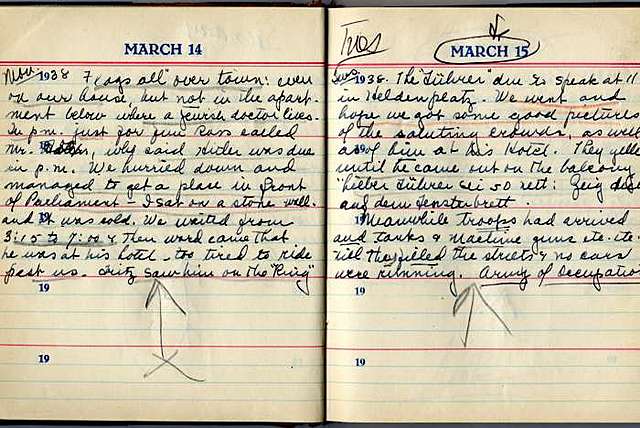 MARCH 14
Mon. 1938 Flags all over town: even
on our house, but not in the apart-
ment below where a Jewish doctor lives.
In p.m. just for June Ross called
Mr. why said Hitler was due
in p.m. We hurried down and
managed to get a place in front
of Parliament - I sat on a stone wall.
and it was cold. We waited from
3:15 to 7:00 & Then word came that
he was at his hotel - too tired to ride
past us. Fritz saw him on the "Ring"
19
19
Tues
MARCH 15
1938. The "Führer" due to speak at 11
in Heldenplatz. We went and
hope we got some good pictures
of the saluting crowds, as well
as of him at his Hotel. They yelled
until he came out on the balcony
"Lieber Führer sei so nett: Zeig dich
auf dem Fensterbrett.
Meanwhile troops had arrived
and tanks & machine guns etc. etc.
till they filled the streets & no cars
were running. Army of Occupation
19
19